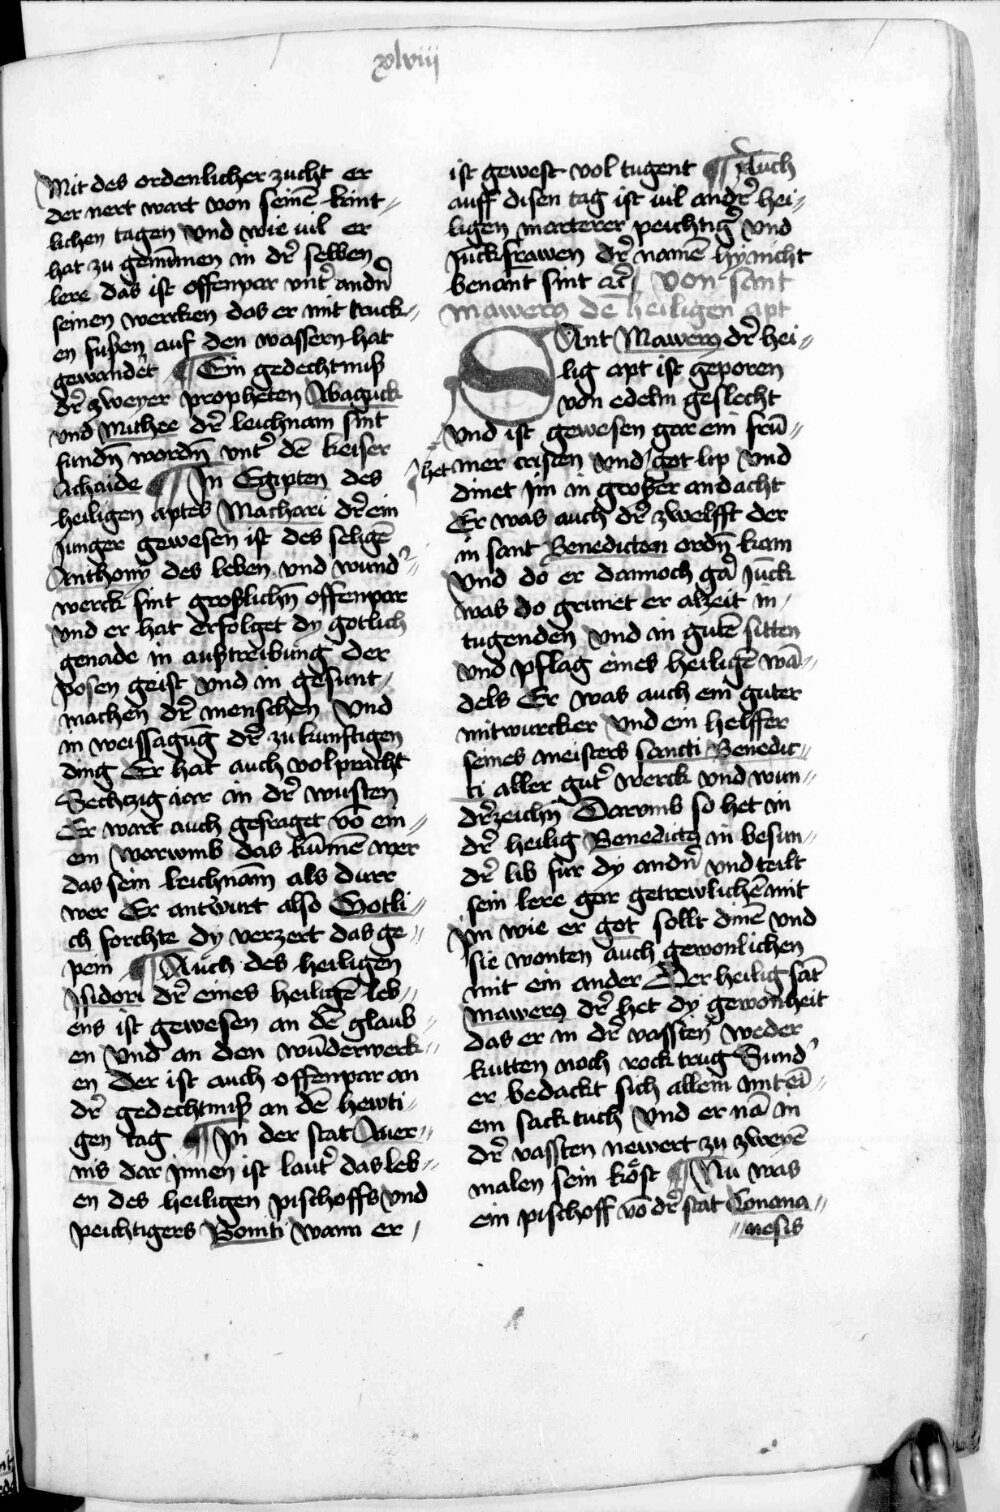 xlviii
Mit des ordenlicher zucht er
der nert wart von seinē kint〃
lichen tagen Vnd wie uil er
hat zu genūmen in dr̄ selben
lere das ist offenpar vnt̄ andn̄
seinen wercken das er mit truck〃
en fußen auf den wassern hat
gewandet ¶ Ein gedechtniß
dr̄ zweyer propheten Abaguck
vnd Mithee dr̄ leichnam sint
fundn̄ wordn̄ vnt̄ dē keiser
Achaide ¶ In Egipten des
heiligen aptes Machari dr̄ ein
Junger gewesen ist des seligē
Anthony des leben vnd wund̄〃
werck sint großlichn̄ offenpar
vnd er hat erfolget dy gotlich
genade in außtreibung der
posen geist vnd in gesunt〃
machen dr̄ menschen Vnd
in weissagūg dr̄ zukunftigen
ding Er hat auch volpracht
Sechtzig iar in dr̄ wusten
Er wart auch gefraget vō ein〃
em Warwmb das kūmē wer
das sein leichnam als durr
wer Er antwurt also Gotli〃
ch forchte dy verzert das ge〃
pein ¶ Auch des heiligen
Jsidori dr̄ eines heiligē leb〃
ens ist gewesen an dē glaub〃
en Vnd an den wūderwerck〃
en Der ist auch offenpar an
dr̄ gedechtniß an dē hewti〃
gen tag ¶ In der stat Auer〃
nis dar jnnen ist laut̄ das leb〃
en des heiligen pischoffs vnd
peichtigers Boniti wann er
ist gewest vol tugent ¶ Auch
auff disen tag ist uil andr̄ hei〃
ligen marterer peichtiḡ vnd
Juckfrawen dr̄ namē hy nicht
benant sint ac̄ Von sant
mawero dē heiligen apt
SAnt Mawero dr̄ hei〃
lig apt ist geporen
von edelm geslecht
Vnd ist gewesen gar ein frū〃
het mer cristen vnd got lip Vnd
dinet Jm in großer andacht
Er was auch dr̄ zwelfft der
in sant Benedicten ordn̄ kam
Vnd do er dannoch gā Juck
was do grunet er alzeit in
tugenden Vnd in gutē sitten
vnd pflag eines heiligē wā〃
dels Er was auch ein guter
mitwurcker Vnd ein helffer
seines meisters sancti Benedic〃
ti aller gut̄ werck vnd wun〃
dr̄zeichn̄ Darvmb so het in
dr̄ heilig Benedicto in besun〃
dr̄ lib fur dy andn̄ vnd teilt
sein lere gar getrewlichē mit
Jm wie er got sollt dinē Vnd
sie wonten auch gewonlichen
mit ein ander Der heilig sāt
mawero dr̄ het dy gewonheit
das er in dr̄ vassten weder
kutten noch rock trug Sund̄
er bedackt sich allein mit eī〃
em sack tuch Vnd er nā in
dr̄ vassten newert zu zweyē
malen sein kost ¶ Nu was
ein pischoff vō dr̄ stat Conoma〃
〃nesis